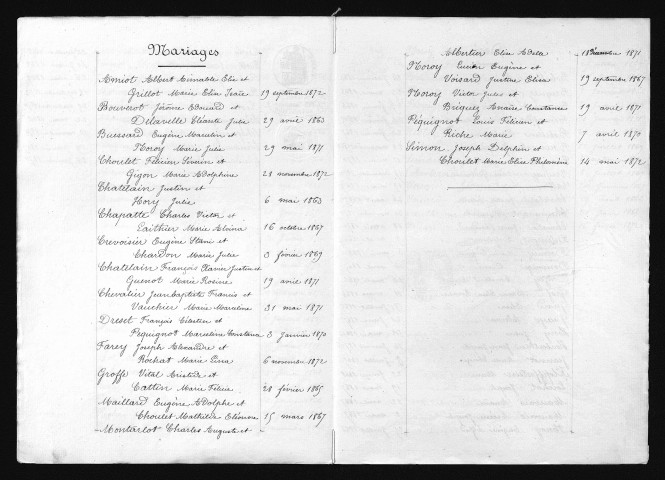 Mariages
Amiot Albert Aimable Elie et
Grillot Marie Elise Isaïe 19 septembre 1872
Bouverot Jérôme Edouard et
Delavelle Julie 29 avril 1863
Bussard Eugène Marcelin et
Noroy Marie Julie 29 mai 1871
Choulet Félicien Séverin et
Gigon Marie Adolphine 28 novembre 1872
Chatelain Justin et
Hory Julie 6 mai 1863
Chapatte Charles Victor et
Gaithier Marie Alvina 16 octobre 1867
Crevoisier Eugène et
Chardon Marie Julie 3 février 1869
Chatelain François Xavier Justin et
Guenot Marie Rosine 19 avril 1871
Chevalier Jean baptiste Francis et
Vauchier Marie Marceline 31 mai 1871
Dreset François Célestin et
Pequignot Marceline Constance 3 janvier 1870
Farey Joseph Alexandre et
Rochat Marie Lina 6 novembre 1872
Groffe Vital Aristide et
Cattin Marie Félicie 28 février 1865
Maillard Eugène Adolphe et
Choulet Mathilde Eléonore 15 mars 1867
Montarlot Charles Auguste et
Albertier Elise Adèle 18 décembre 1871
Noroy Lucien Eugène et
Voisard Justine Elisa 19 septembre 1867
Noroy Victor Jules et
Briquez Anaïse Constance 19 avril 1871
Péquignot Louis Félicien et
Riche Marie 7 avril 1870
Simon Joseph Delphin et
Choulet Marie Elise Philomène 14 mai 1872